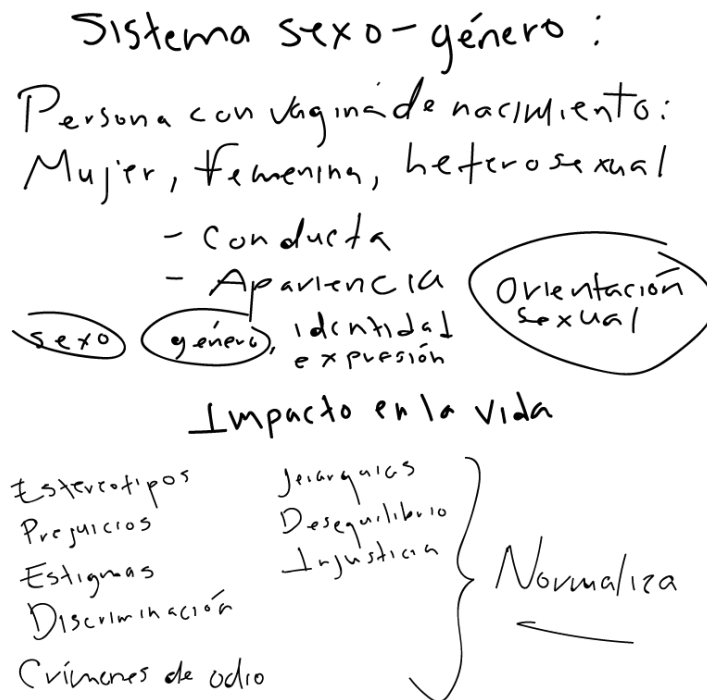 Sistema sexo-género:
Persona con vagina de nacimiento:
Mujer, femenina, heterosexual
- Conducta
- Apariencia
Orientación sexual
sexo
género, identidad
expresión
Impacto en la vida
Estereotipos
Prejuicios
Estigmas
Discriminación
Crímenes de odio
Jerarquías
Desequilibrio
Injusticia
Normaliza